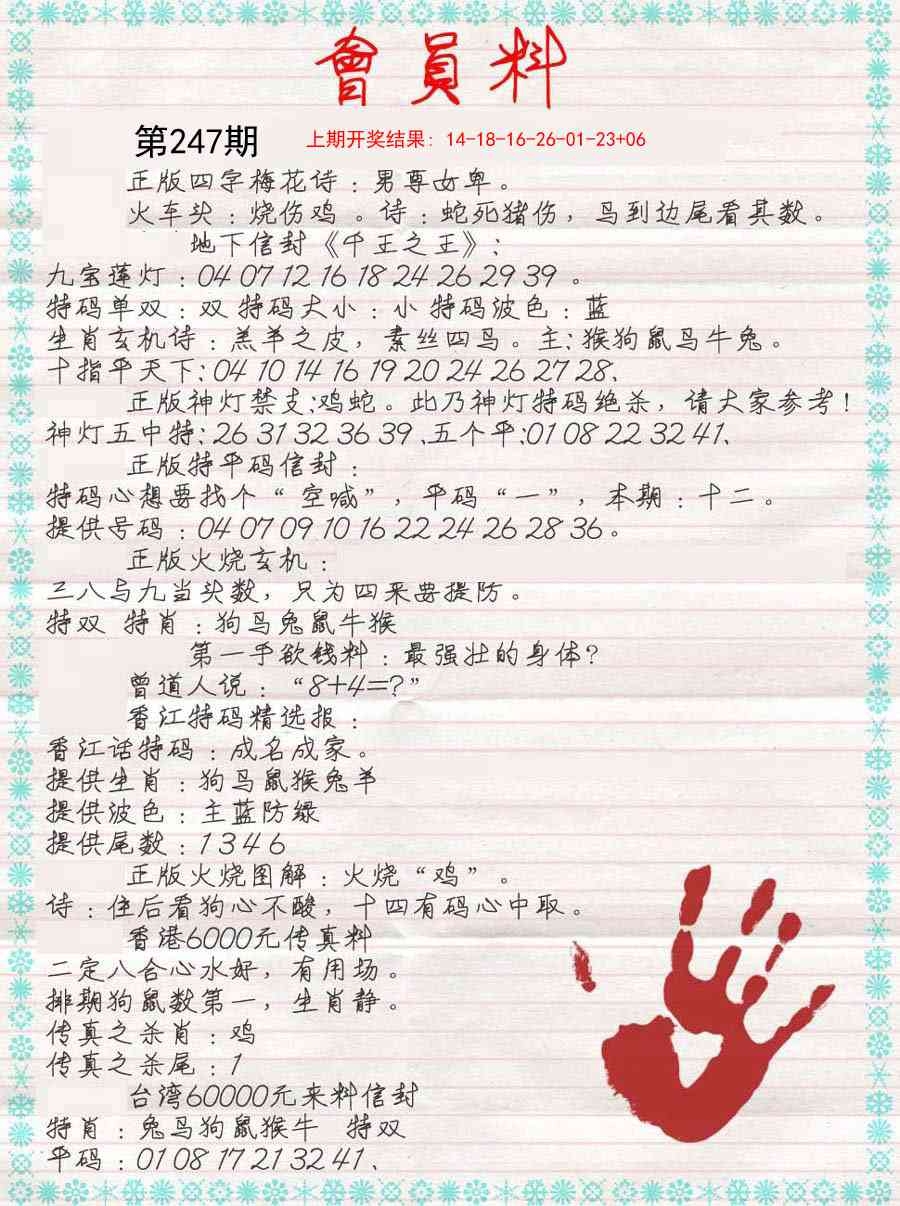 會員料
第247期 上期开奖结果: 14-18-16-26-01-23+06
正版四字梅花诗：男尊女卑。
火车头：烧伤鸡 。诗：蛇死猪伤，鸟到边尾看其数。
地下信封《千王之王》：
九宝莲灯：04 07 12 16 18 24 26 29 39 。
特码单双：双 特码大小：小 特码波色：蓝
生肖玄机诗：羔羊之皮，素丝四马。主: 猴狗鼠马牛兔。
十指平天下: 04 10 14 16 19 20 24 26 27 28、
正版神灯禁支:鸡蛇。此乃神灯特码绝杀，请大家参考！
神灯五中特: 26 31 32 36 39 、五个平:01 08 22 32 41、
正版特平码信封：
特码心想要找个“ 空喊”，平码“一”，本期：十二。
提供号码：04 07 09 10 16 22 24 26 28 36。
正版火烧玄机：
三八与九当头数，只为四来要提防。
特双 特肖：狗马兔鼠牛猴
第一手欲钱料：最强壮的身体?
曾道人说：“8+4=?”
香江特码精选报：
香江话特码：成名成家。
提供生肖：狗马鼠猴兔羊
提供波色：主蓝防绿
提供尾数：1 3 4 6
正版火烧图解：火烧“鸡” 。
诗：住后看狗心不酸，十四有码心中取。
香港6000元传真料
二定八合心水好，有用场。
排期狗鼠数第一，生肖静。
传真之杀肖：鸡
传真之杀尾：1
台湾60000元来料信封
特肖：兔马狗鼠猴牛 特双
平码：01 08 17 21 32 41、